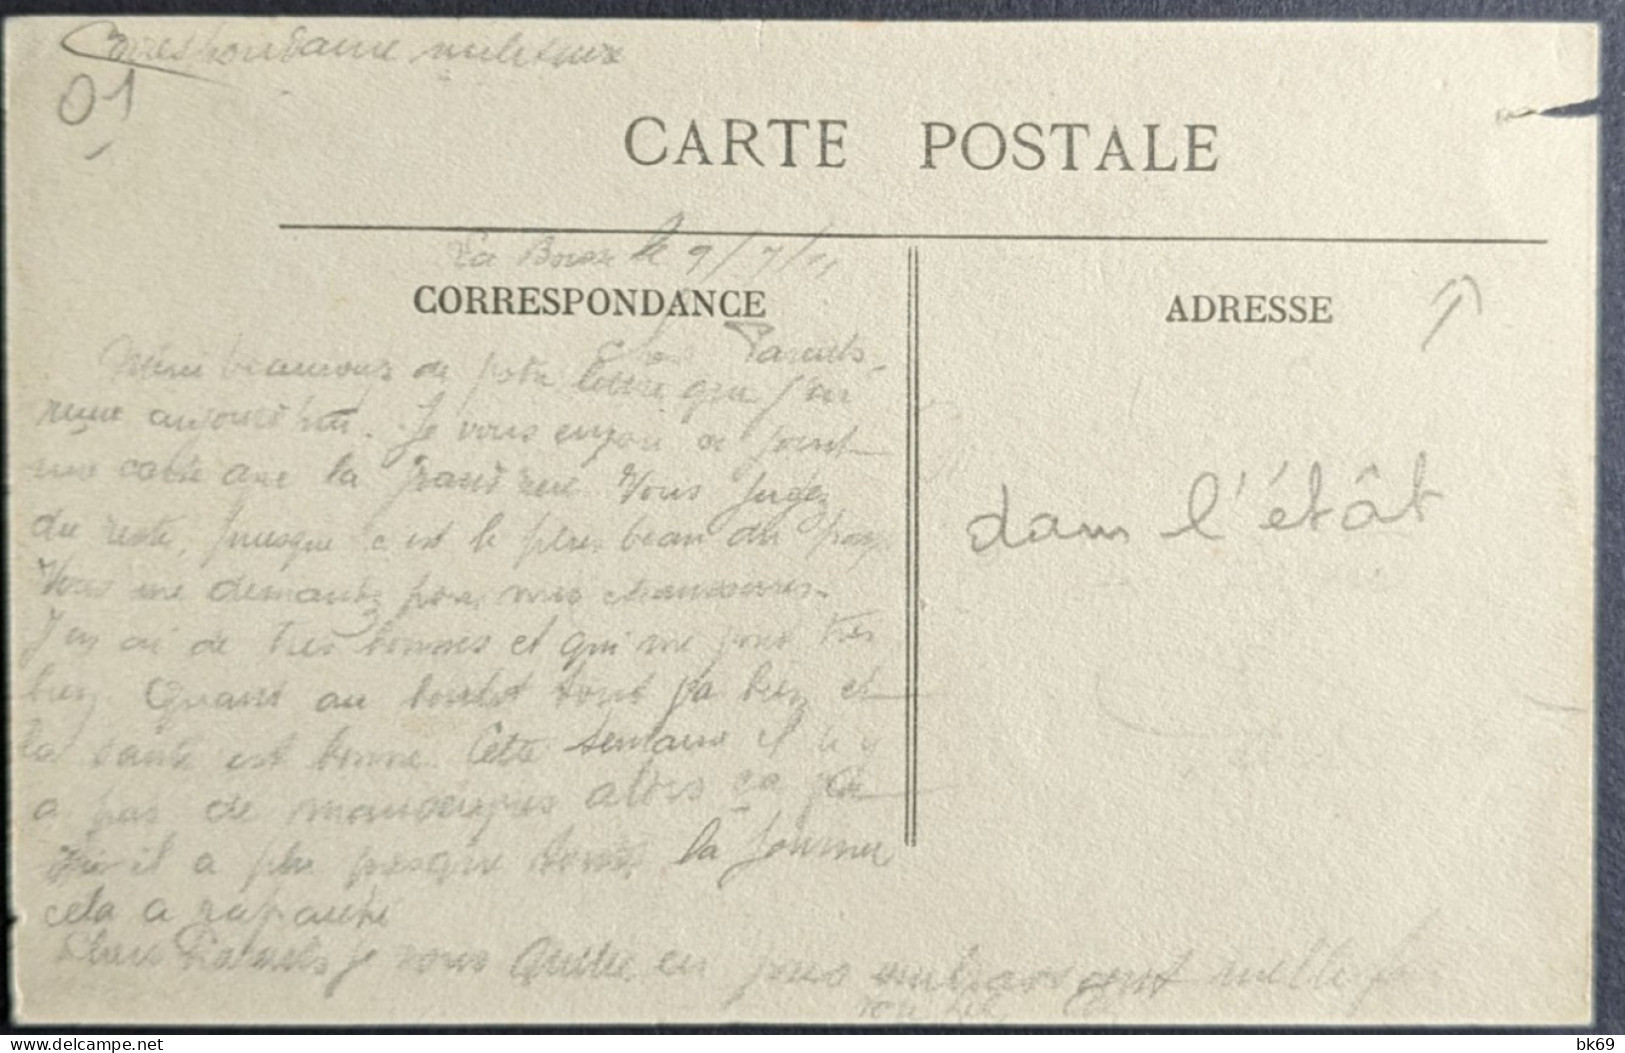 Correspondance militaire
01
CARTE POSTALE
La Boisse le 9/7/11
CORRESPONDANCE
ADRESSE
Chers Parents,
Merci beaucoup de votre lettre que j'ai
reçue aujourd'hui. Je vous envoie ci joint
une carte que la grand rue. Vous jugez
du reste, puisque c'est le plus beau du pays
Vous me demandez pour mes chaussures.
J'en ai de très bonnes et qui me vont très
bien. Quant au boulot tout va bien et
la santé est bonne. Cette semaine il n'y
a pas de manoeuvres alors ça va
Hier il a plu presque toute la journée
cela a
Chers Parents je vous quitte en vous embrassant mille fois
Votre fils
dans l'étât
bk69